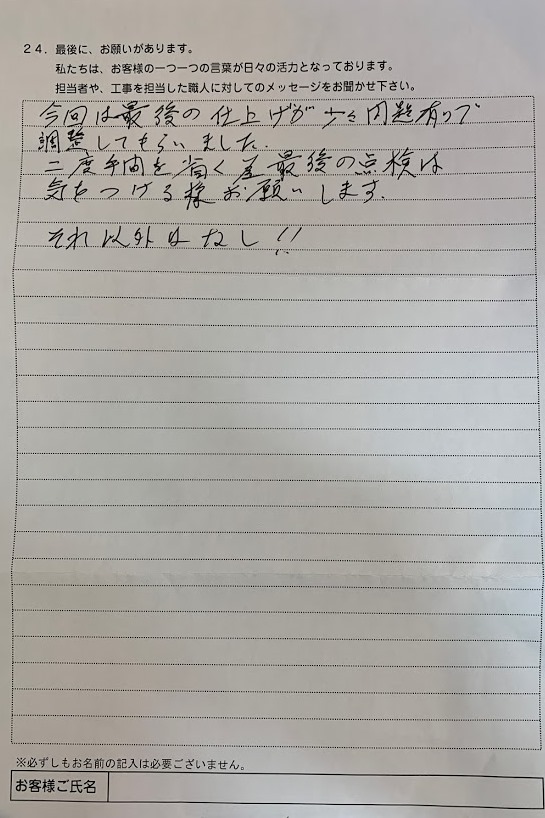 24．最後に、お願いがあります。
私たちは、お客様の一つ一つの言葉が日々の活力となっております。
担当者や、工事を担当した職人に対してのメッセージをお聞かせ下さい。
今回は最後の仕上げが少々問題有って
調整してもらいました.
二度手間を省く 最後の点検は
気をつける様お願いします.
それ以外はなし!!
※必ずしもお名前の記入は必要ございません。
お客様ご氏名